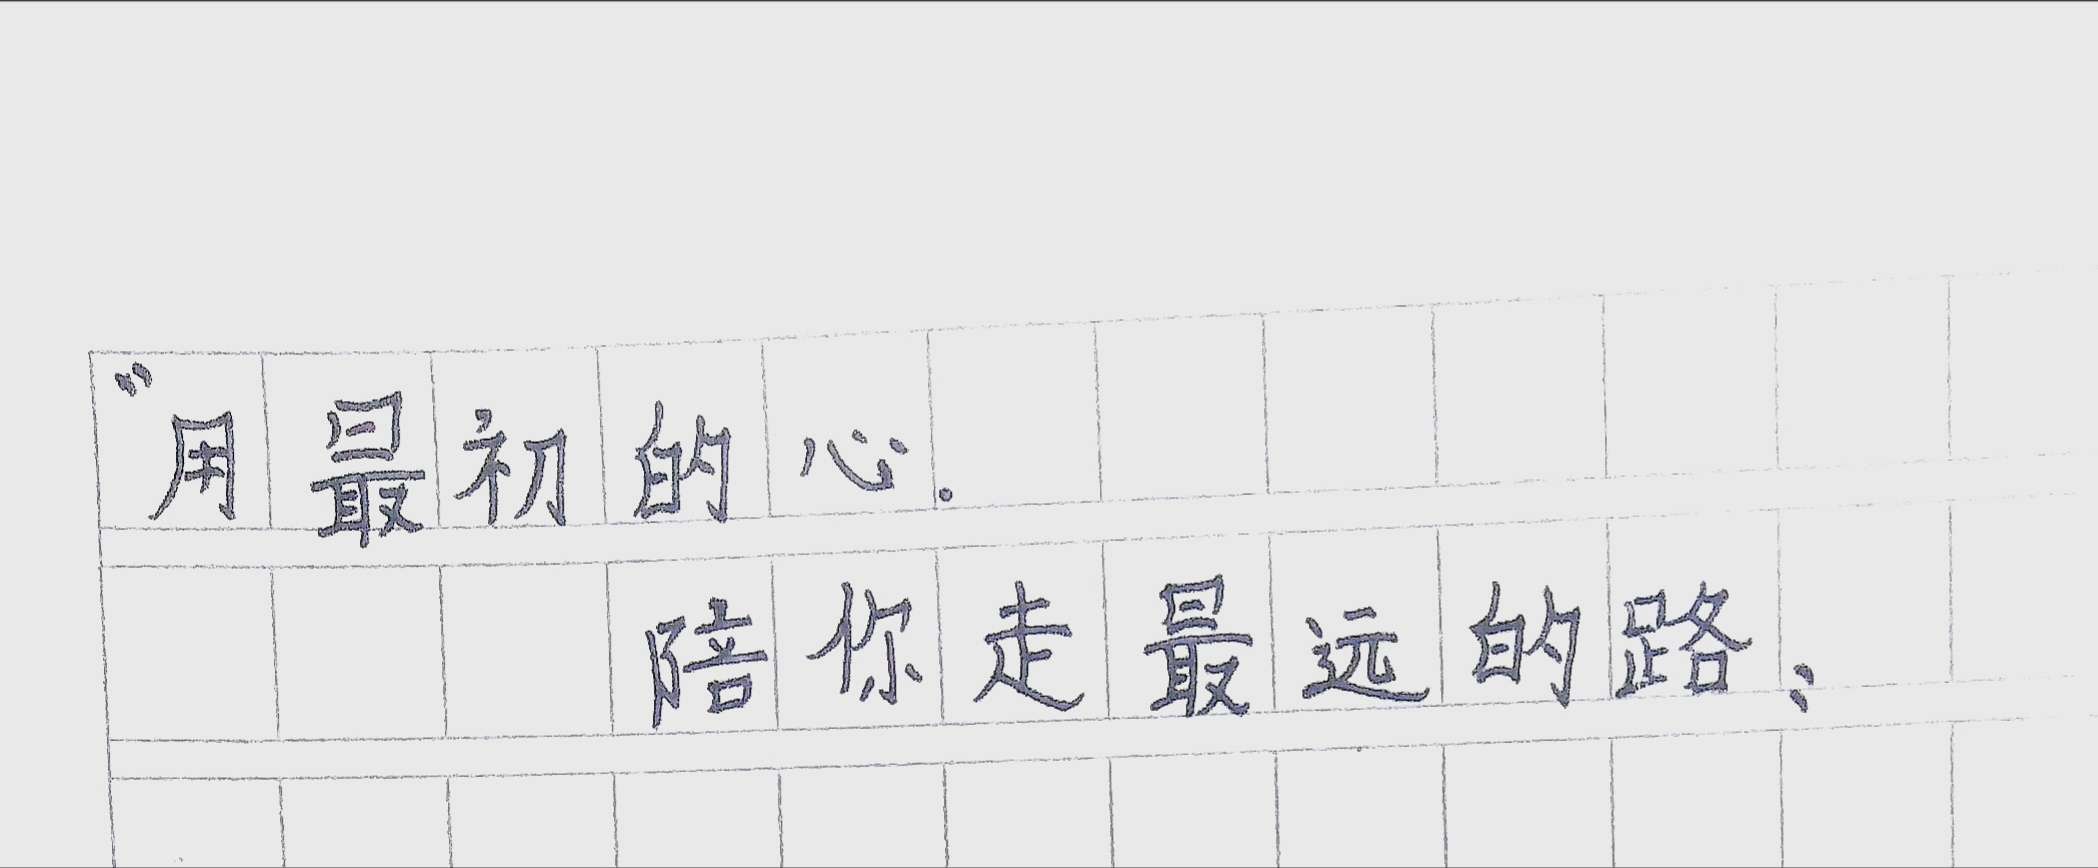 "用最初的心.
陪你走最远的路;